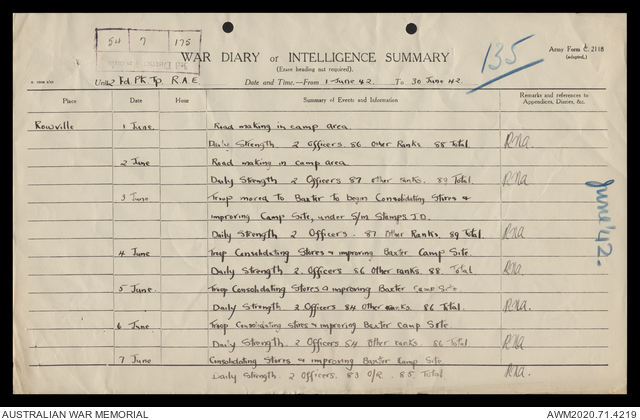 54 7 175
WAR DIARY or INTELLIGENCE SUMMARY
(Erase heading not required).
Army Form C. 2118
(adopted.)
135
Unit 2 Fd. Pk. Tp. R.A.E.
Date and Time.—From 1 June 42. To 30 June 42
Place Date Hour Summary of Events and Information Remarks and references to Appendices, Diaries, &c.
Rowville 1 June. Road making in camp area.
Daily Strength. 2 Officers. 86 Other Ranks. 88 Total. RNa.
2 June Road making in camp area.
Daily Strength 2 Officers 87 other ranks. 89 Total. RNa
3 June Troop moved to Baxter to begin Consolidating Stores &
improving Camp Site, under S/m Stamps J.D.
Daily Strength 2 Officers. 87 Other Ranks. 89 Total. RNa
4 June Troop Consolidating Stores & improving Baxter Camp Site.
Daily Strength 2. Officers 86 Other ranks. 88. Total. RNa
5 June. Troop Consolidating Stores & improving Baxter Camp Site
Daily Strength. 2 Officers 84 other ranks. 86 Total. RNa.
6 June Troop Consolidating Stores & improving Baxter Camp Site.
Daily Strength. 2 Officers 84 Other ranks. 86 Total RNa
7 June Consolidating Stores & improving Baxter Camp Site.
Daily Strength. 2 Officers 83 O/R. 85 Total. RNa.
June '42.
AUSTRALIAN WAR MEMORIAL
AWM2020.71.4219